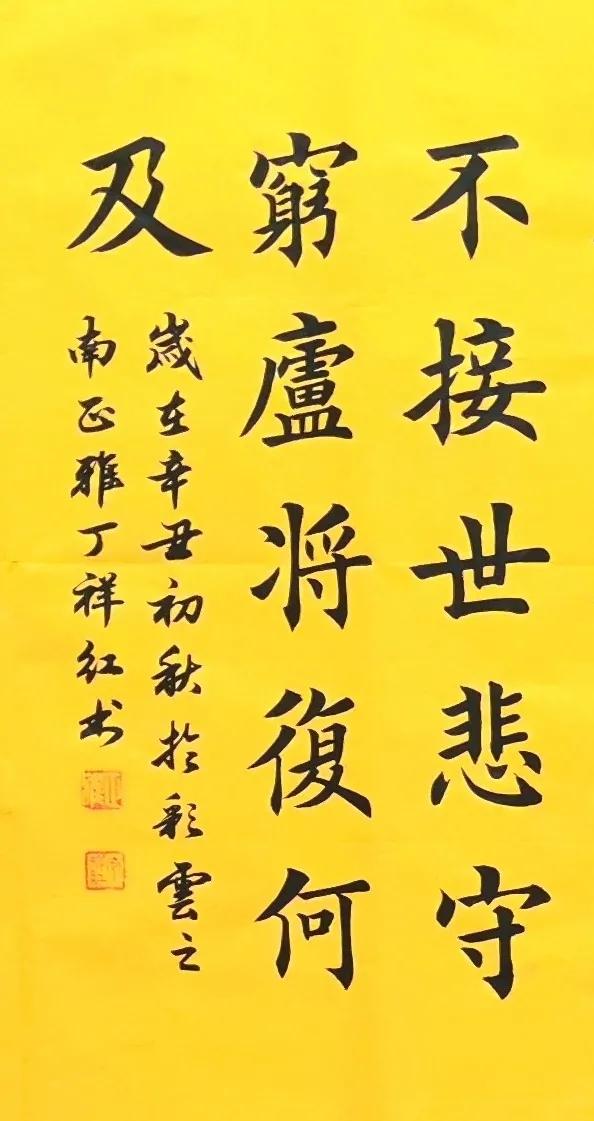 不接世悲守
窮廬將復何
及
歲在辛丑初秋於彩雲之
南正雅丁祥紅书